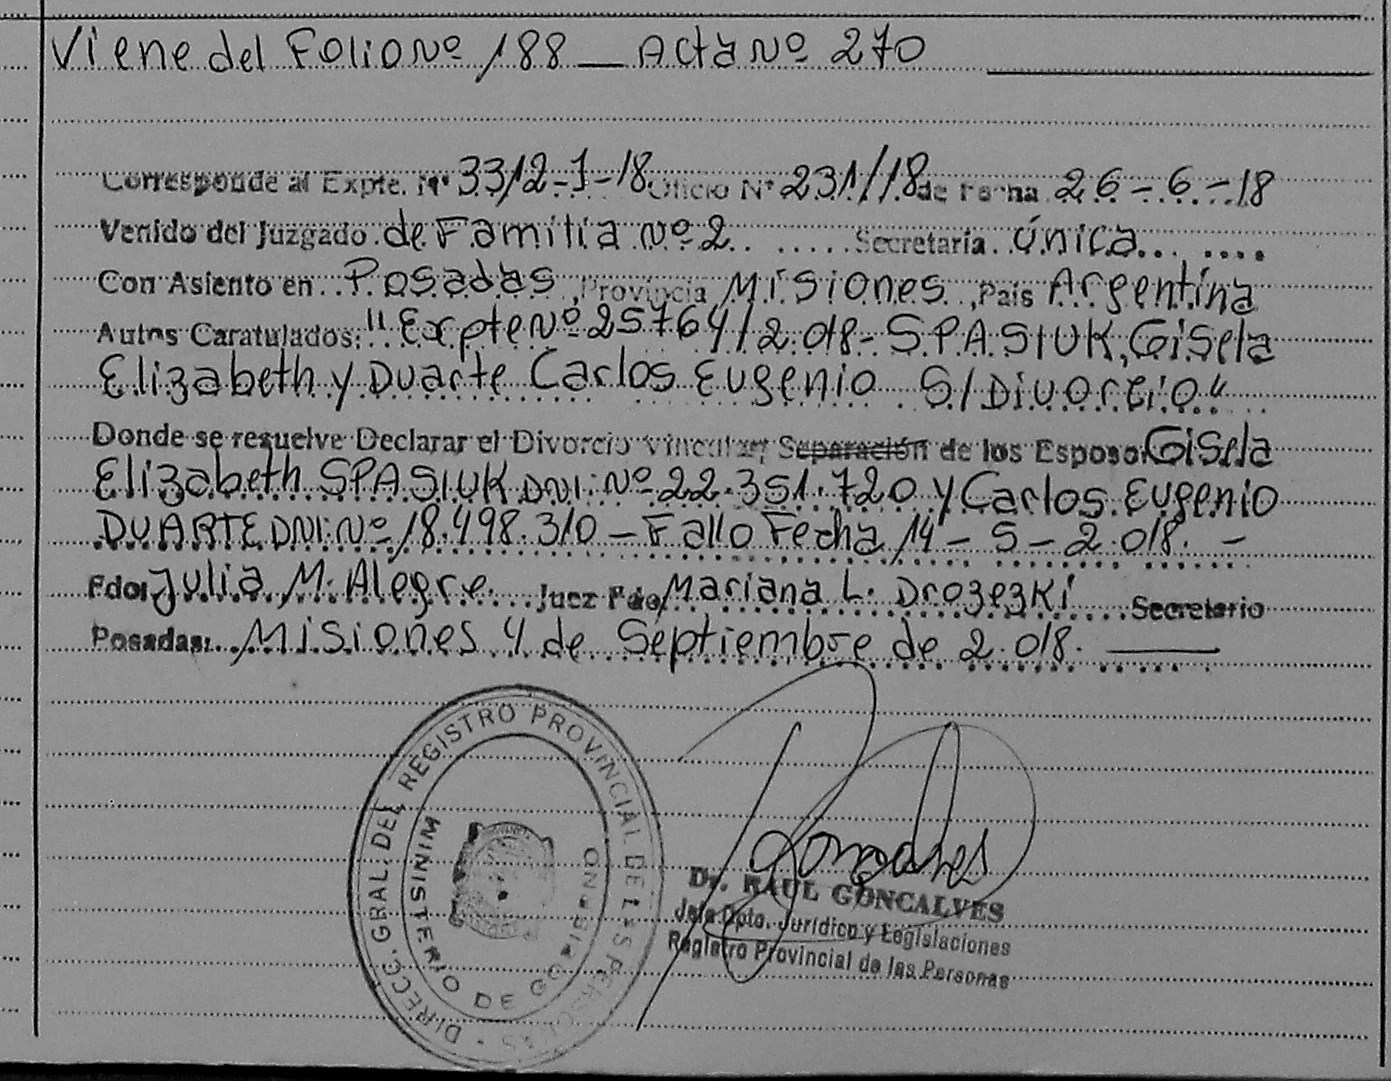 Viene del Folio Nº 188 — Acta Nº 270
Corresponde al Expte. Nº 3312-J-18 Oficio Nº 231/18 de Fecha 26-6-18
Venido del Juzgado de Familia Nº 2 Secretaría Única
Con Asiento en Posadas, Provincia Misiones, País Argentina
Autos Caratulados: "Expte Nº 25764/2.018- SPASIUK, Gisela
Elizabeth y Duarte Carlos Eugenio S/Divorcio"
Donde se resuelve Declarar el Divorcio Vincular, Separación de los Esposos Gisela
Elizabeth SPASIUK DNI: Nº 22.351.720 y Carlos Eugenio
DUARTE DNI: Nº 18.498.310 - Fallo Fecha 14-5-2.018. -
Fdo: Julia M. Alegre Juez Fdo Mariana L. Drozezki Secretario
Posadas: Misiones 4 de Septiembre de 2.018.
DIRECC. GRAL. DEL REGISTRO PROVINCIAL DE LAS PERSONAS
MINISTERIO DE GOBIERNO
Dr. RAUL GONCALVES
Jefe Dpto. Jurídico y Legislaciones
Registro Provincial de las Personas